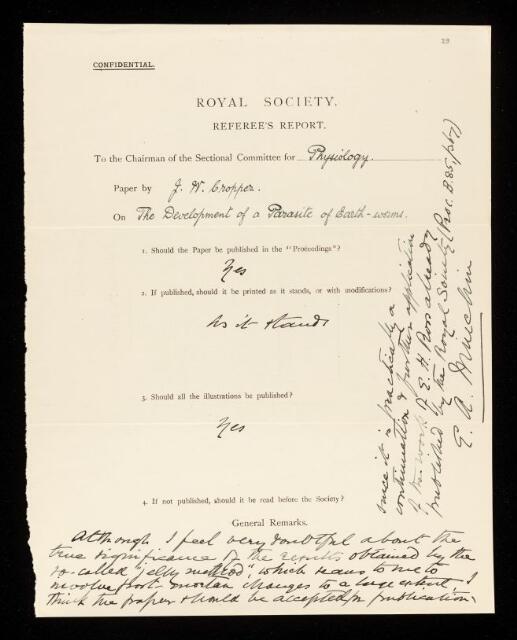 19
CONFIDENTIAL.
ROYAL SOCIETY.
REFEREE'S REPORT.
To the Chairman of the Sectional Committee for Physiology.
Paper by J. W. Cropper.
On The Development of a Parasite of Earth-worms.
1. Should the Paper be published in the "Proceedings"?
Yes
2. If published, should it be printed as it stands, or with modifications?
As it stands
3. Should all the illustrations be published?
Yes
4. If not published, should it be read before the Society?
General Remarks.
Although I feel very doubtful about the
true significance of the results obtained by the
so-called "jelly method", which seems to me to
involve post mortem changes to a large extent, I
think the paper should be accepted for publication,
since it is practically a
continuation & further application
of the work of E. H. Ross already
published by the Royal Society (Proc. B. 85, p. 67)
E. A. Minchin